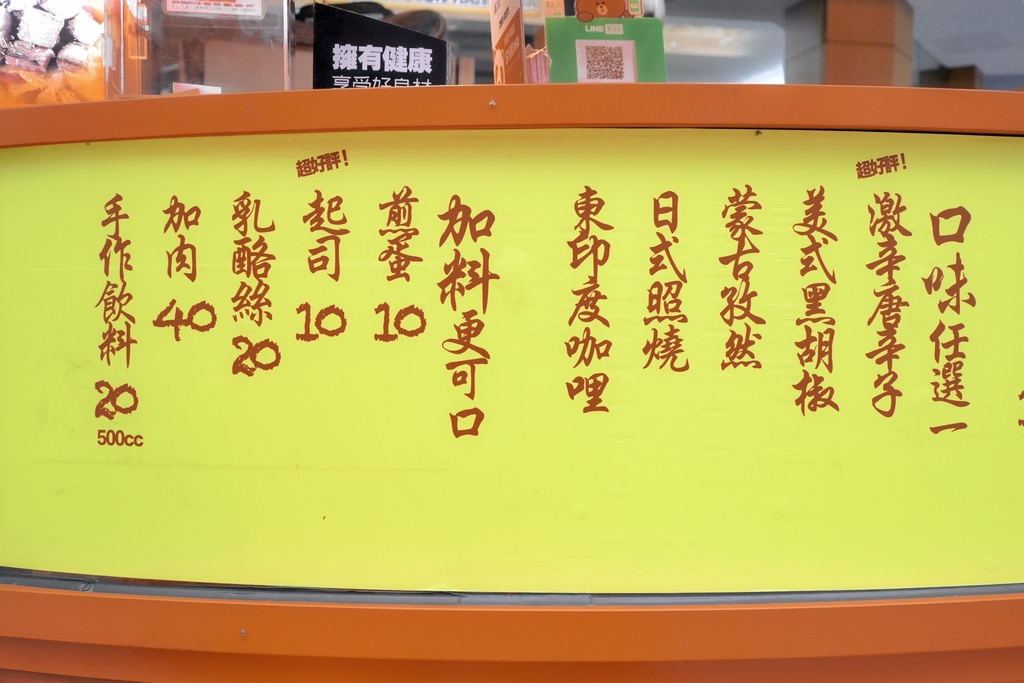 擁有健康
享受好食材
LINE
口味任選一
超好評！
激辛唐辛子
美式黑胡椒
蒙古孜然
日式照燒
東印度咖哩
加料更可口
煎蛋 10
超好評！
起司 10
乳酪絲 20
加肉 40
手作飲料 20
500cc